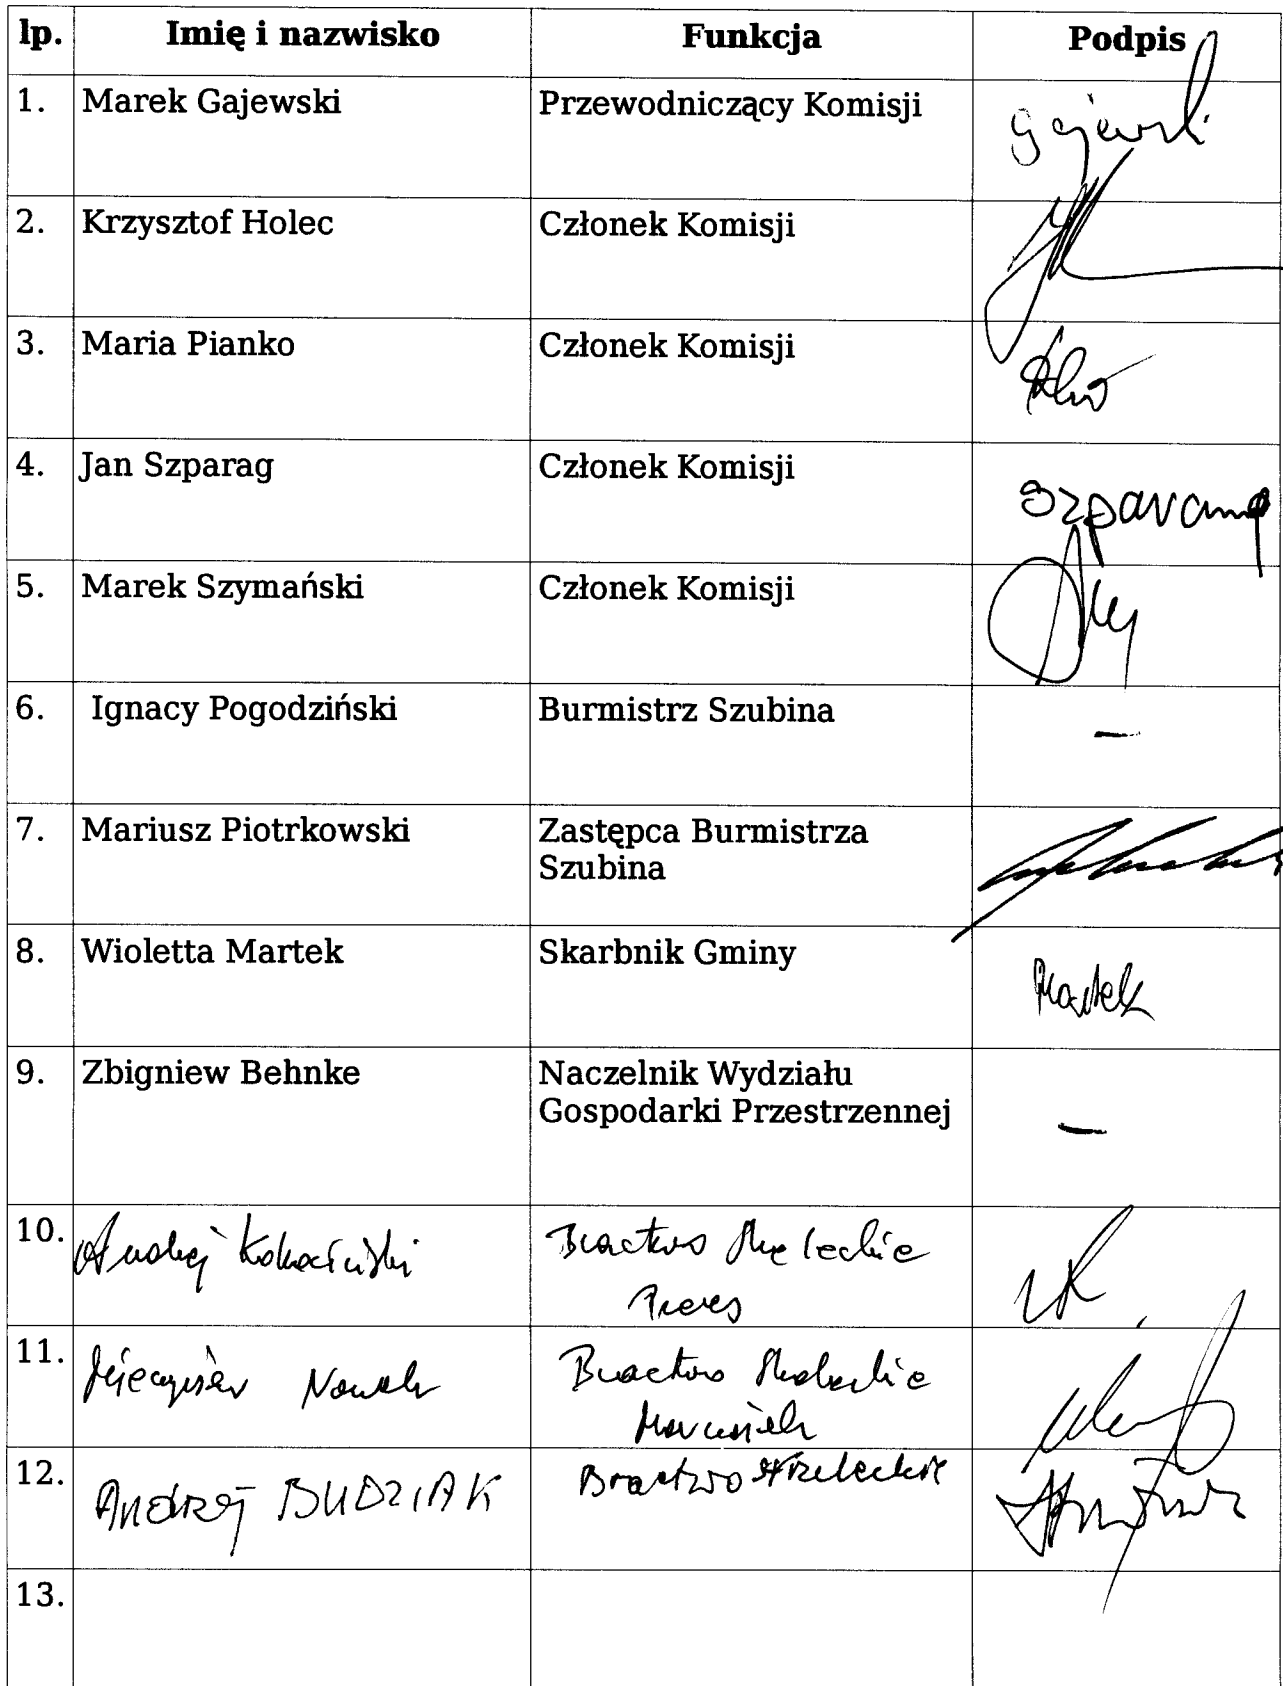 lp. Imię i nazwisko Funkcja Podpis
1. Marek Gajewski Przewodniczący Komisji Gajewski
2. Krzysztof Holec Członek Komisji
3. Maria Pianko Członek Komisji
4. Jan Szparag Członek Komisji
5. Marek Szymański Członek Komisji
6. Ignacy Pogodziński Burmistrz Szubina –
7. Mariusz Piotrkowski Zastępca Burmistrza
Szubina
8. Wioletta Martek Skarbnik Gminy Martek
9. Zbigniew Behnke Naczelnik Wydziału
Gospodarki Przestrzennej –
10. Andrzej Kokociński Bractwo Strzeleckie
Prezes
11. Mieczysław Nowak Bractwo Strzeleckie
12. Andrzej BUDZIAK Bractwo strzeleckie
13.